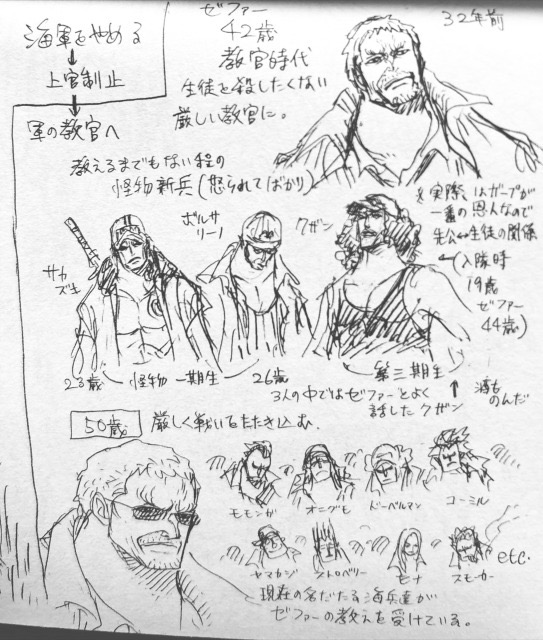 海軍をやめる
↓
上官制止
↓
軍の教官へ
ゼファー
42歳
教官時代
生徒を殺したくない
厳しい教官に。
32年前
教えるまでもない程の
怪物新兵(怒られてばかり)
※実際はガープが
一番の恩人なので
先公↔生徒の関係
入隊時
19歳
ゼファー
44歳
サカズキ
ボルサリーノ
クザン
23歳 怪物一期生 26歳
第三期生
3人の中ではゼファーとよく
話したクザン
↑ 酒も
のんだ
50歳
厳しく戦いをたたき込む。
モモンガ
オニグモ
ドーベルマン
コーミル
ヤマカジ
ストロベリー
ヒナ
スモーカー
etc.
現在の名だたる海兵達が
ゼファーの教えを受けている。